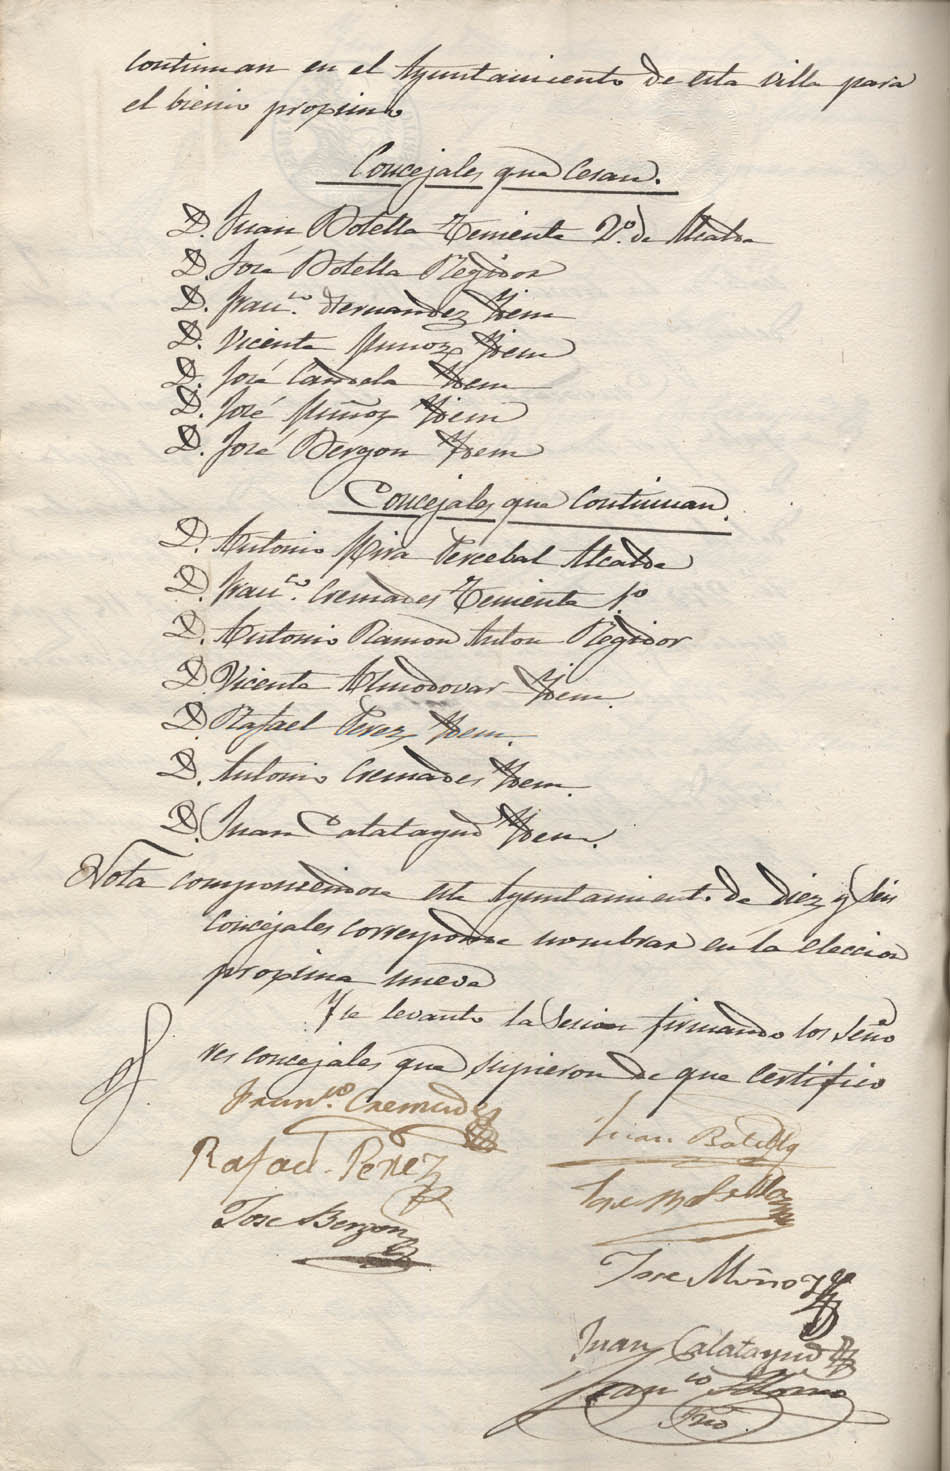 continuan en el Ayuntamiento de esta villa para
el bienio proximo
Concejales que Cesan.
D. Juan Botella Teniente 2º. de Alcalde
D. José Botella Regidor
D. Franco. Hernandez Idem
D. Vicente Muñoz Idem
D. José Candela Idem
D. José Muñoz Idem
D. José Bergon Idem
Concejales que Continuan.
D. Antonio Mira Percebal Alcalde
D. Franco. Cremades Teniente 1º
D. Antonio Ramon Anton Regidor
D. Vicente Almodovar Idem.
D. Rafael Perez Idem.
D. Antonio Cremades Idem.
D. Juan Calatayud Idem.
Nota componiendose este Ayuntamiento. de diez y seis
concejales corresponde nombrar en la eleccion
proxima nueve
Y se levanto la sesion firmando los Seño
res concejales que supieron de que certifico
Franco. Cremades
Juan Botella
Rafael Perez
Jose Botella
Jose Bergon
Jose Muñoz
Juan Calatayud
Franco
Srio.